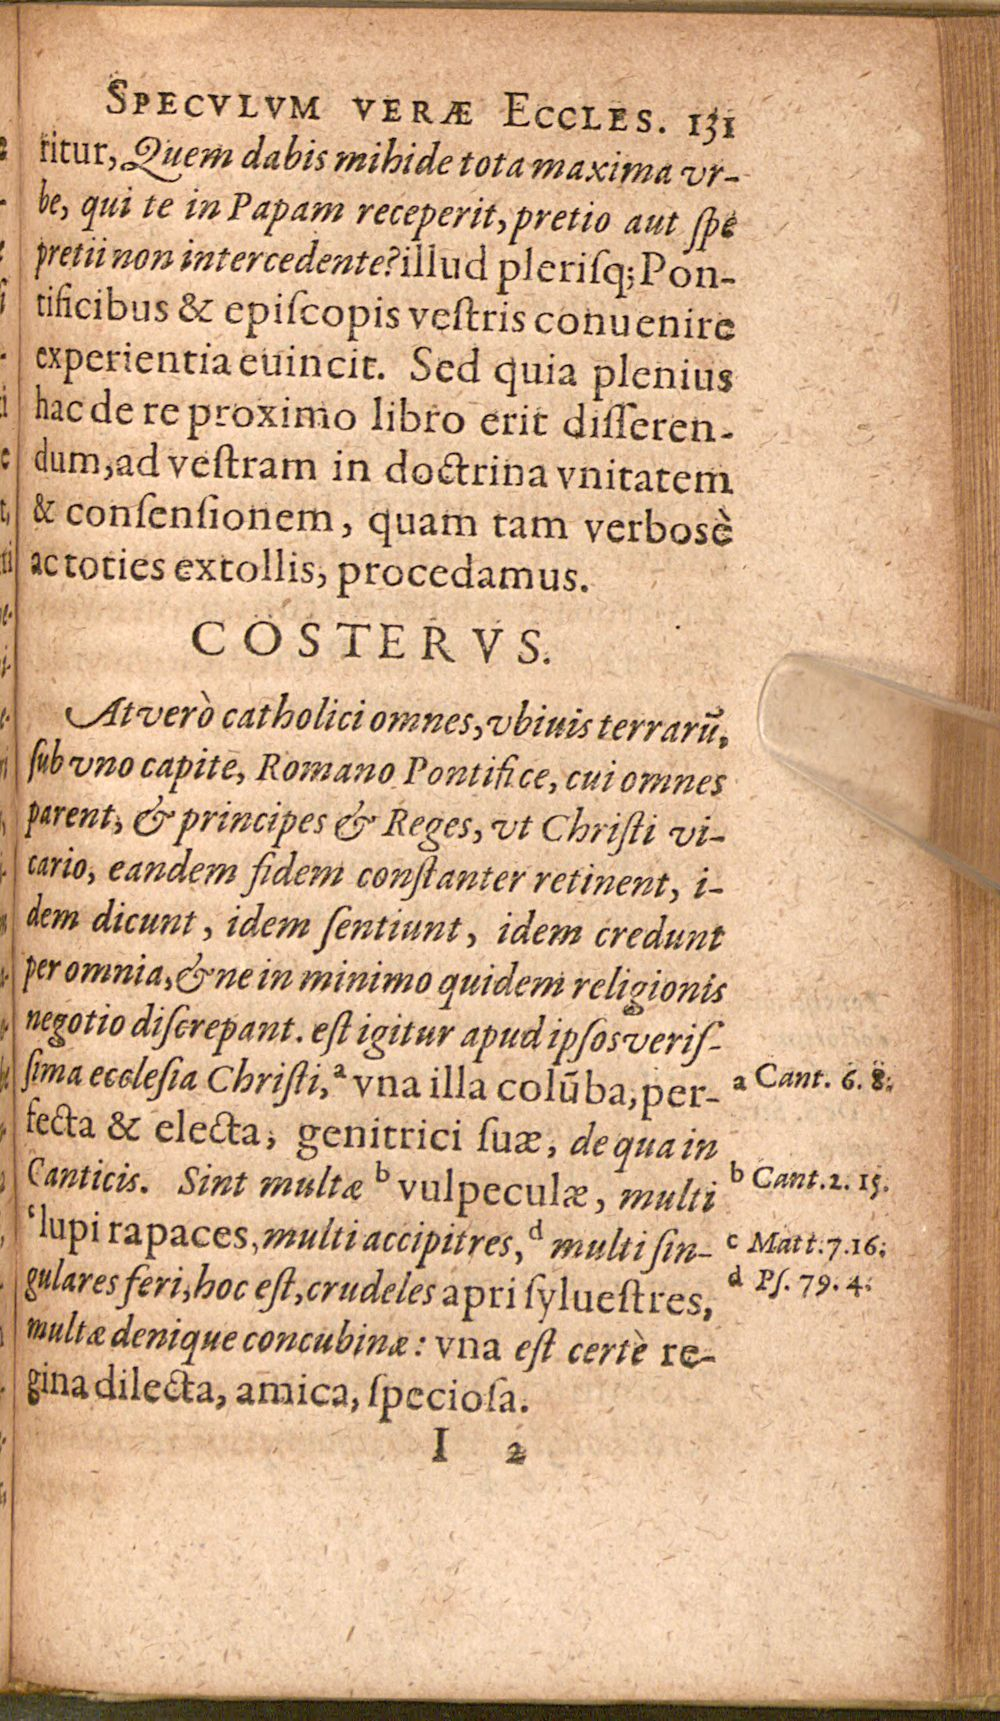 SPECVLVM VERÆ ECCLES. 131
titur, Quem dabis mihi de tota maxima vr-
be, qui te in Papam receperit, pretio aut ſpe
pretii non intercedente? illud pleriſq; Pon-
tificibus & epiſcopis veſtris conuenire
experientia euincit. Sed quia plenius
hac de re proximo libro erit diſſeren-
dum, ad veſtram in doctrina vnitatem
& conſenſionem, quam tam verbosè
ac toties extollis, procedamus.
COSTERVS.
At verò catholici omnes, vbiuis terrarū,
ſub vno capite, Romano Pontifice, cui omnes
parent, & principes & Reges, vt Chriſti vi-
cario, eandem fidem conſtanter retinent, i-
dem dicunt, idem ſentiunt, idem credunt
per omnia, & ne in minimo quidem religionis
negotio diſcrepant. eſt igitur apud ipſos veriſ-
ſima eccleſia Chriſti, a vna illa colūba, per-
fecta & electa, genitrici ſuæ, de qua in
Canticis. Sint multæ b vulpeculæ, multi
c lupi rapaces, multi accipitres, d multi ſin-
gulares feri, hoc eſt, crudeles apri ſylueſtres,
multæ denique concubinæ: vna eſt certè re-
gina dilecta, amica, ſpecioſa.
I 2
a Cant. 6. 8.
b Cant. 2. 15.
c Matt. 7. 16.
d Pſ. 79. 4.